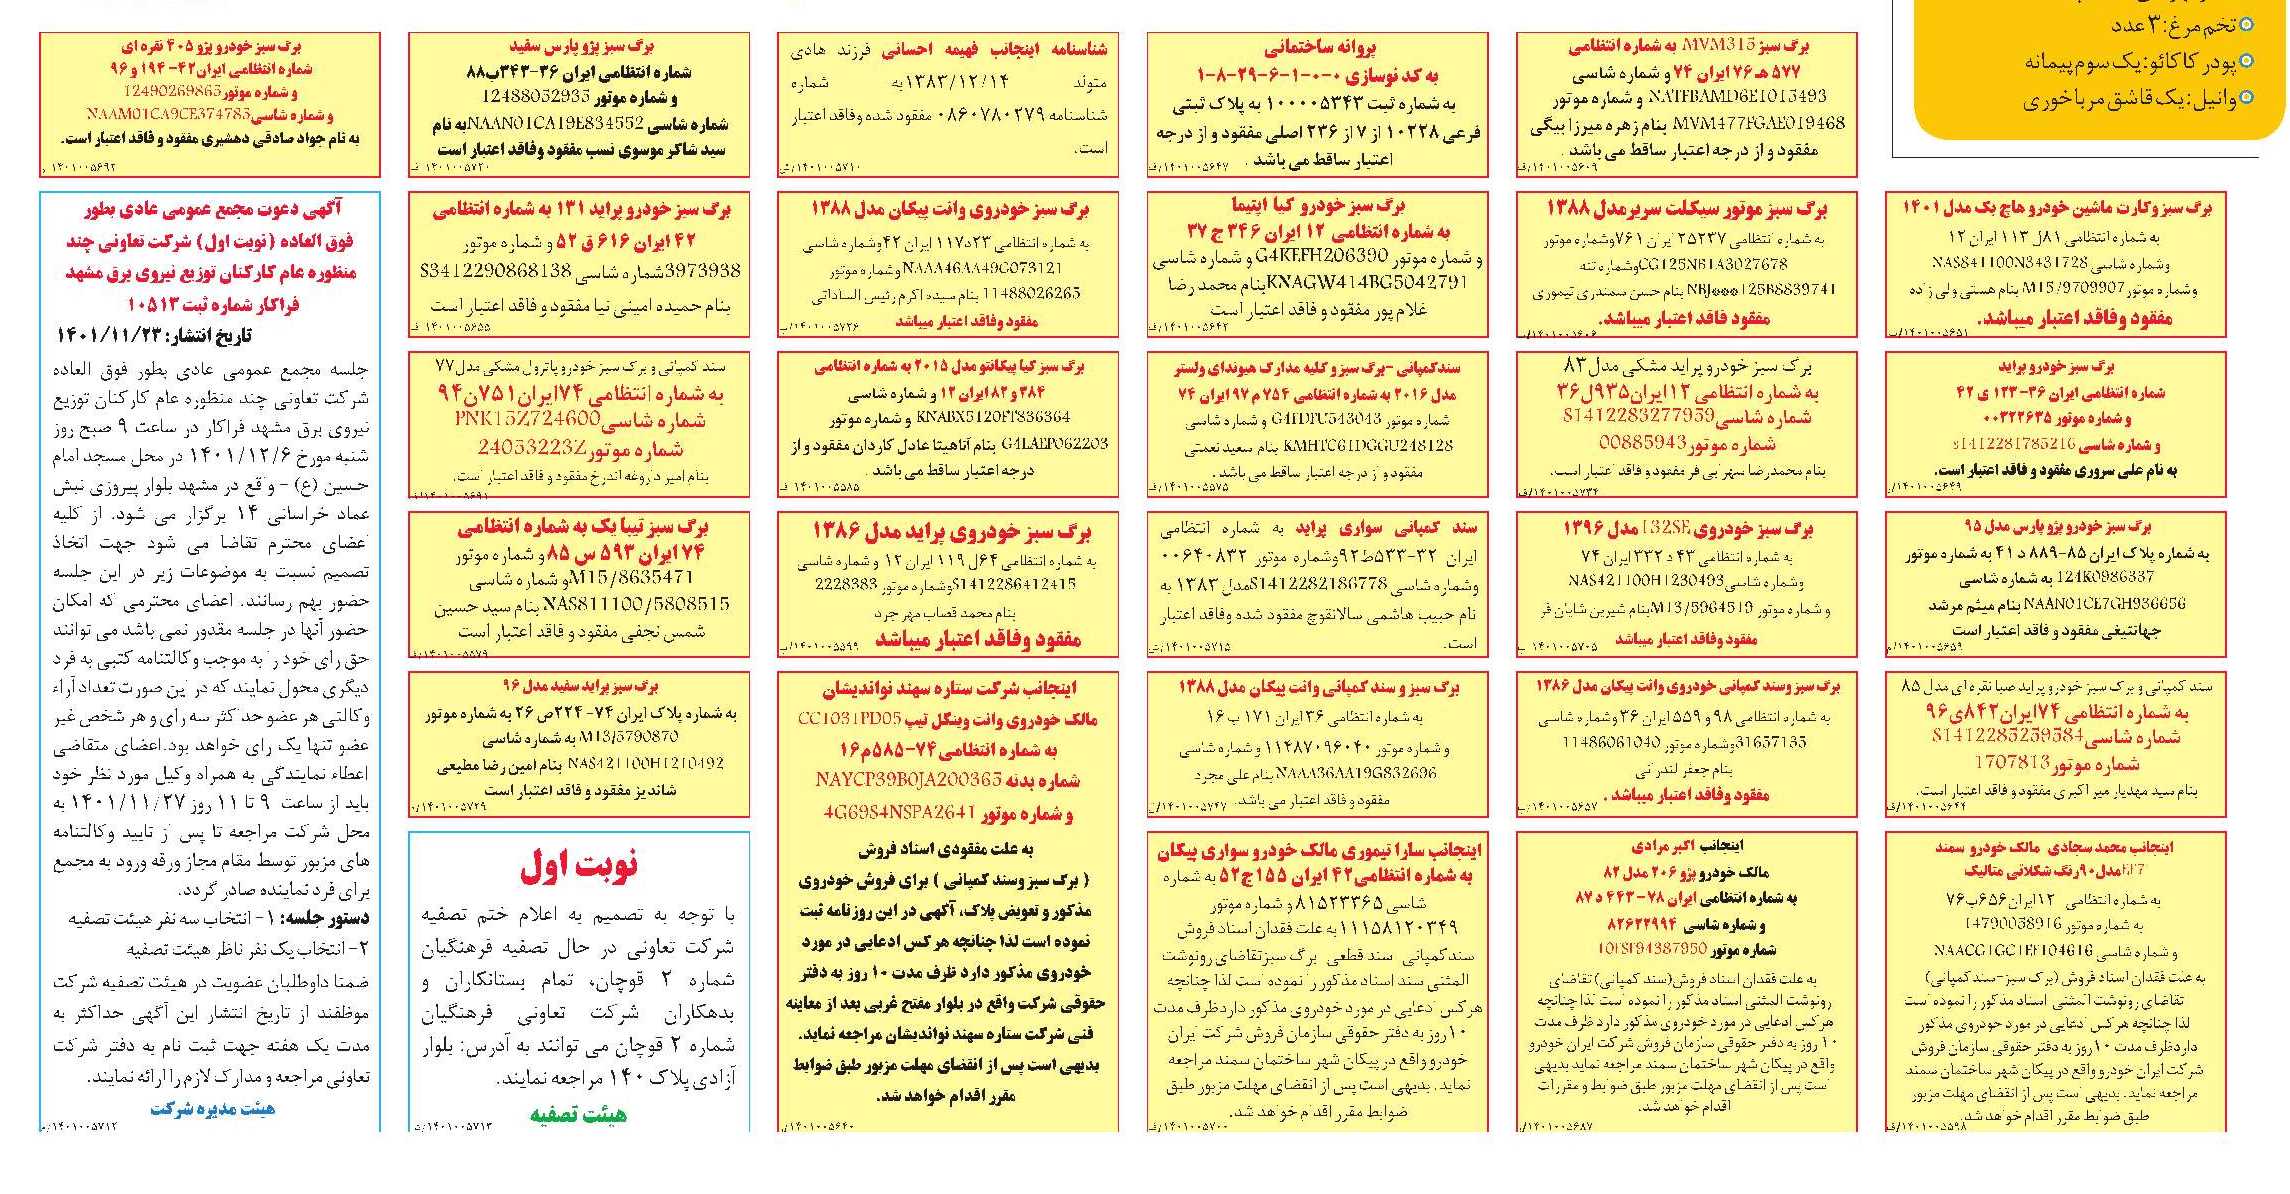 تخم مرغ: ۳ عدد
پودر کاکائو: یک سوم پیمانه
وانیل: یک قاشق مرباخوری
برگ سبز وکارت ماشین خودرو هاچ بک مدل ۱۴۰۱
به شماره انتظامی ۸۱ل ۱۱۳ ایران ۱۲
وشماره شاسی NAS841100N3431728
وشماره موتور M15/9709907 بنام هستی ولی زاده
مفقود وفاقد اعتبار میباشد.
۱۴۰۱۰۰۵۶۵۱/ب
برگ سبز خودرو پراید
شماره انتظامی ایران ۳۶-۱۲۳ ی ۴۲
و شماره موتور ۰۰۳۲۲۶۳۵
و شماره شاسی s1412281785216
به نام علی سروری مفقود و فاقد اعتبار است.
برگ سبز خودرو پژو پارس مدل ۹۵
به شماره پلاک ایران ۸۵-۸۸۹ د ۴۱ به شماره موتور
124K0986337 به شماره شاسی
NAAN01CE7GH936656 بنام میثم مرشد
جهانتیغی مفقود و فاقد اعتبار است
سند کمپانی و برگ سبز خودرو پراید صبا نقره ای مدل ۸۵
به شماره انتظامی ۷۴ایران۸۴۲ی۹۶
شماره شاسیS1412285259584
شماره موتور1707813
بنام سید مهدیار میر اکبری مفقود و فاقد اعتبار است.
اینجانب محمد سجادی مالک خودرو سمند
EF7مدل۹۰رنگ شکلاتی متالیک
به شماره انتظامی ۱۲ایران۶۵۶ب۷۶
به شماره موتور 14790058916
و شماره شاسی NAACG1GC1EF104616
به علت فقدان اسناد فروش (برگ سبز-سندکمپانی)
تقاضای رونوشت المثنی اسناد مذکور را نموده است
لذا چنانچه هرکس ادعایی در مورد خودروی مذکور
داردظرف مدت ۱۰روز به دفتر حقوقی سازمان فروش
شرکت ایران خودرو واقع در پیکان شهر ساختمان سمند
مراجعه نماید. بدیهی است پس از انقضای مهلت مزبور
طبق ضوابط مقرر اقدام خواهد شد.
۱۴۰۱۰۰۵۵۹۸/ف
برگ سبز MVM315 به شماره انتظامی
۵۷۷ هـ ۷۶ ایران ۷۴ و شماره شاسی
NATFBAMD6E1015493 و شماره موتور
MVM477FGAE019468 بنام زهره میرزا بیگی
مفقود و از درجه اعتبار ساقط می باشد .
۱۴۰۱۰۰۵۶۰۹/ف
برگ سبز موتور سیکلت سریرمدل ۱۳۸۸
به شماره انتظامی ۲۵۲۳۷ ایران ۷۶۱وشماره موتور
CG125N61A3027678وشماره تنه
NBJ***125B8839741 بنام حسن سمندری تیموری
مفقود فاقد اعتبار میباشد.
برگ سبز خودرو پراید مشکی مدل ۸۳
به شماره انتظامی ۱۲ایران۹۳۵ل۳۶
شماره شاسیS1412283277959
شماره موتور00885943
بنام محمدرضا سهرابی فر مفقود و فاقد اعتبار است.
۱۴۰۱۰۰۵۷۳۴/ف
برگ سبز خودروی 132SE مدل ۱۳۹۶
به شماره انتظامی ۴۳ د ۳۳۲ایران ۷۴
وشماره شاسیNAS421100H1230493
و شماره موتور M13/5964519بنام شیرین شایان فر
مفقود وفاقد اعتبار میباشد
۱۴۰۱۰۰۵۷۰۵/ب
برگ سبز وسند کمپانی خودروی وانت پیکان مدل ۱۳۸۶
به شماره انتظامی ۹۸ و ۵۵۹ ایران ۳۶ وشماره شاسی
31657135وشماره موتور 11486061040
بنام جعفر لندرانی
مفقود وفاقد اعتبار میباشد .
۱۴۰۱۰۰۵۶۵۷/ب
اینجانب اکبر مرادی
مالک خودرو پژو ۲۰۶ مدل ۸۲
به شماره انتظامی ایران ۷۸-۴۴۳ د ۸۷
و شماره شاسی ۸۲۶۲۲۹۹۴
شماره موتور 10FSF94387950
به علت فقدان اسناد فروش(سند کمپانی) تقاضای
رونوشت المثنی اسناد مذکور را نموده است لذا چنانچه
هرکس ادعایی در مورد خودروی مذکور دارد ظرف مدت
۱۰ روز به دفتر حقوقی سازمان فروش شرکت ایران خودرو
واقع در پیکان شهر ساختمان سمند مراجعه نماید بدیهی
است پس از انقضای مهلت مزبور طبق ضوابط و مقررات
اقدام خواهد شد.
۱۴۰۱۰۰۵۶۸۷
پروانه ساختمانی
به کد نوسازی ۰-۰-۱-۶-۲۹-۸-۱
به شماره ثبت ۱۰۰۰۰۵۳۴۳ به پلاک ثبتی
فرعی ۱۰۲۲۸ از ۷ از ۲۳۶ اصلی مفقود و از درجه
اعتبار ساقط می باشد .
۱۴۰۱۰۰۵۶۴۷/ف
برگ سبز خودرو کیا اپتیما
به شماره انتظامی ۱۲ ایران ۳۴۶ ج ۳۷
و شماره موتور G4KEFH206390و شماره شاسی
KNAGW414BG5042791بنام محمد رضا
غلام پور مفقود و فاقد اعتبار است
۱۴۰۱۰۰۵۶۴۲/ف
سندکمپانی -برگ سبز و کلیه مدارک هیوندای ولستر
مدل ۲۰۱۶ به شماره انتظامی ۷۵۴ م ۹۷ ایران ۷۴
شماره موتور G4FDFU543043 و شماره شاسی
KMHTC61DGGU248128 بنام سعید نعمتی
مفقود و از درجه اعتبار ساقط می باشد .
۱۴۰۱۰۰۵۵۷۵/ف
سند کمپانی سواری پراید به شماره انتظامی
ایران ۳۲-۵۳۳ط۹۲وشماره موتور ۰۰۶۴۰۸۳۲
وشماره شاسی S1412282186778مدل ۱۳۸۳ به
نام حبیب هاشمی سالانقوچ مفقود شده وفاقد اعتبار
است.
برگ سبز و سند کمپانی وانت پیکان مدل ۱۳۸۸
به شماره انتظامی ۳۶ایران ۱۷۱ ب ۱۶
و شماره موتور ۱۱۴۸۷۰۹۶۰۴۰ و شماره شاسی
NAAA36AA19G832696بنام علی مجرد
مفقود و فاقد اعتبار می باشد.
اینجانب سارا تیموری مالک خودرو سواری پیکان
به شماره انتظامی۴۲ ایران ۱۵۵ج۵۲ به شماره
شاسی ۸۱۵۲۳۳۶۵ و شماره موتور
۱۱۱۵۸۱۲۰۳۴۹ به علت فقدان اسناد فروش
سندکمپانی سند قطعی برگ سبزتقاضای رونوشت
المثنی سند اسناد مذکور را نموده است لذا چنانچه
هرکس ادعایی در مورد خودروی مذکور داردظرف مدت
۱۰روز به دفتر حقوقی سازمان فروش شرکت ایران
خودرو واقع در پیکان شهر ساختمان سمند مراجعه
نماید. بدیهی است پس از انقضای مهلت مزبور طبق
ضوابط مقرر اقدام خواهد شد.
۱۴۰۱۰۰۵۷۰۰/ف
شناسنامه اینجانب فهیمه احسانی فرزند هادی
متولد ۱۳۸۳/۱۲/۱۴به شماره
شناسنامه ۰۸۶۰۷۸۰۲۷۹ مفقود شده وفاقد اعتبار
است.
برگ سبز خودروی وانت پیکان مدل ۱۳۸۸
به شماره انتظامی ۲۳د۱۱۷ ایران ۴۲وشماره شاسی
NAAA46AA49G073121وشماره موتور
11488026265 بنام سیده اکرم رئیس الساداتی
مفقود وفاقد اعتبار میباشد
۱۴۰۱۰۰۵۷۳۶/ب
برگ سبز کیا پیکانتو مدل ۲۰۱۵ به شماره انتظامی
۲۸۴ و ۸۲ ایران ۱۲ و شماره شاسی
KNABX5120FT836364 و شماره موتور
G4LAEP062203 بنام آناهیتا عادل کاردان مفقود و از
درجه اعتبار ساقط می باشد .
۱۴۰۱۰۰۵۵۸۵ ف
برگ سبز خودروی پراید مدل ۱۳۸۶
به شماره انتظامی ۶۴ل ۱۱۹ ایران ۱۲ و شماره شاسی
S1412286412415وشماره موتور 2228383
بنام محمد قصاب مهر جرد
مفقود وفاقد اعتبار میباشد
۱۴۰۱۰۰۵۵۹۹/ب
اینجانب شرکت ستاره سهند نواندیشان
مالک خودروی وانت وینگل تیپ CC1031PD05
به شماره انتظامی۷۴-۵۸۵م۱۶
شماره بدنه NAYCP39B0JA200365
و شماره موتور 4G69S4NSPA2641
به علت مفقودی اسناد فروش
( برگ سبز وسند کمپانی ) برای فروش خودروی
مذکور و تعویض پلاک، آگهی در این روزنامه ثبت
نموده است لذا چنانچه هر کس ادعایی در مورد
خودروی مذکور دارد ظرف مدت ۱۰ روز به دفتر
حقوقی شرکت واقع در بلوار مفتح غربی بعد از معاینه
فنی شرکت ستاره سهند نواندیشان مراجعه نماید.
بدیهی است پس از انقضای مهلت مزبور طبق ضوابط
مقرر اقدام خواهد شد.
برگ سبز پژو پارس سفید
شماره انتظامی ایران ۳۶-۳۴۳ب۸۸
و شماره موتور 12488052935
شماره شاسی NAAN01CA19E834552به نام
سید شاکر موسوی نسب مفقود وفاقد اعتبار است
۱۴۰۱۰۰۵۷۲۰ ف
برگ سبز خودرو پراید ۱۳۱ به شماره انتظامی
۴۲ ایران ۶۱۶ ق ۵۲ و شماره موتور
3973938شماره شاسی S3412290868138
بنام حمیده امینی نیا مفقود و فاقد اعتبار است
۱۴۰۱۰۰۵۶۵۵ ف
سند کمپانی و برگ سبز خودرو پاترول مشکی مدل ۷۷
به شماره انتظامی ۷۴ایران۷۵۱ن۹۴
شماره شاسیPNK15Z724600
شماره موتور24053223Z
بنام امیر داروغه اندرخ مفقود و فاقد اعتبار است.
برگ سبز تیبا یک به شماره انتظامی
۷۴ ایران ۵۹۳ س ۸۵ و شماره موتور
M15/8635471و شماره شاسی
NAS811100/5808515بنام سید حسین
شمس نجفی مفقود و فاقد اعتبار است
برگ سبز پراید سفید مدل ۹۶
به شماره پلاک ایران ۷۴-۲۲۴ص ۲۶ به شماره موتور
M13/5790870 به شماره شاسی
NAS421100H1210492 بنام امین رضا مطیعی
شاندیز مفقود و فاقد اعتبار است
نوبت اول
با توجه به تصمیم به اعلام ختم تصفیه
شرکت تعاونی در حال تصفیه فرهنگیان
شماره ۲ قوچان، تمام بستانکاران و
بدهکاران شرکت تعاونی فرهنگیان
شماره ۲ قوچان می توانند به آدرس: بلوار
آزادی پلاک ۱۴۰ مراجعه نمایند.
هیئت تصفیه
برگ سبز خودرو پژو ۴۰۵ نقره ای
شماره انتظامی ایران۴۲- ۱۹۴ و ۹۶
و شماره موتور12490269865
و شماره شاسیNAAM01CA9CE374785
به نام جواد صادقی دهشیری مفقود و فاقد اعتبار است.
۱۴۰۱۰۰۵۶۹۲ م
آگهی دعوت مجمع عمومی عادی بطور
فوق العاده (نوبت اول) شرکت تعاونی چند
منظوره عام کارکنان توزیع نیروی برق مشهد
فراکار شماره ثبت ۱۰۵۱۳
تاریخ انتشار: ۱۴۰۱/۱۱/۲۳
جلسه مجمع عمومی عادی بطور فوق العاده
شرکت تعاونی چند منظوره عام کارکنان توزیع
نیروی برق مشهد فراکار در ساعت ۹ صبح روز
شنبه مورخ ۱۴۰۱/۱۲/۶ در محل مسجد امام
حسین (ع) - واقع در مشهد بلوار پیروزی نبش
عماد خراسانی ۱۴ برگزار می شود. از کلیه
اعضای محترم تقاضا می شود جهت اتخاذ
تصمیم نسبت به موضوعات زیر در این جلسه
حضور بهم رسانند. اعضای محترمی که امکان
حضور آنها در جلسه مقدور نمی باشد می توانند
حق رای خود را به موجب وکالتنامه کتبی به فرد
دیگری محول نمایند که در این صورت تعداد آراء
وکالتی هر عضو حداکثر سه رای و هر شخص غیر
عضو تنها یک رای خواهد بود.اعضای متقاضی
اعطاء نمایندگی به همراه وکیل مورد نظر خود
باید از ساعت ۹ تا ۱۱ روز ۱۴۰۱/۱۱/۲۷ به
محل شرکت مراجعه تا پس از تایید وکالتنامه
های مزبور توسط مقام مجاز ورقه ورود به مجمع
برای فرد نماینده صادر گردد.
دستور جلسه: ۱- انتخاب سه نفر هیئت تصفیه
۲- انتخاب یک نفر ناظر هیئت تصفیه
ضمنا داوطلبان عضویت در هیئت تصفیه شرکت
موظفند از تاریخ انتشار این آگهی حداکثر به
مدت یک هفته جهت ثبت نام به دفتر شرکت
تعاونی مراجعه و مدارک لازم را ارائه نمایند.
هیئت مدیره شرکت